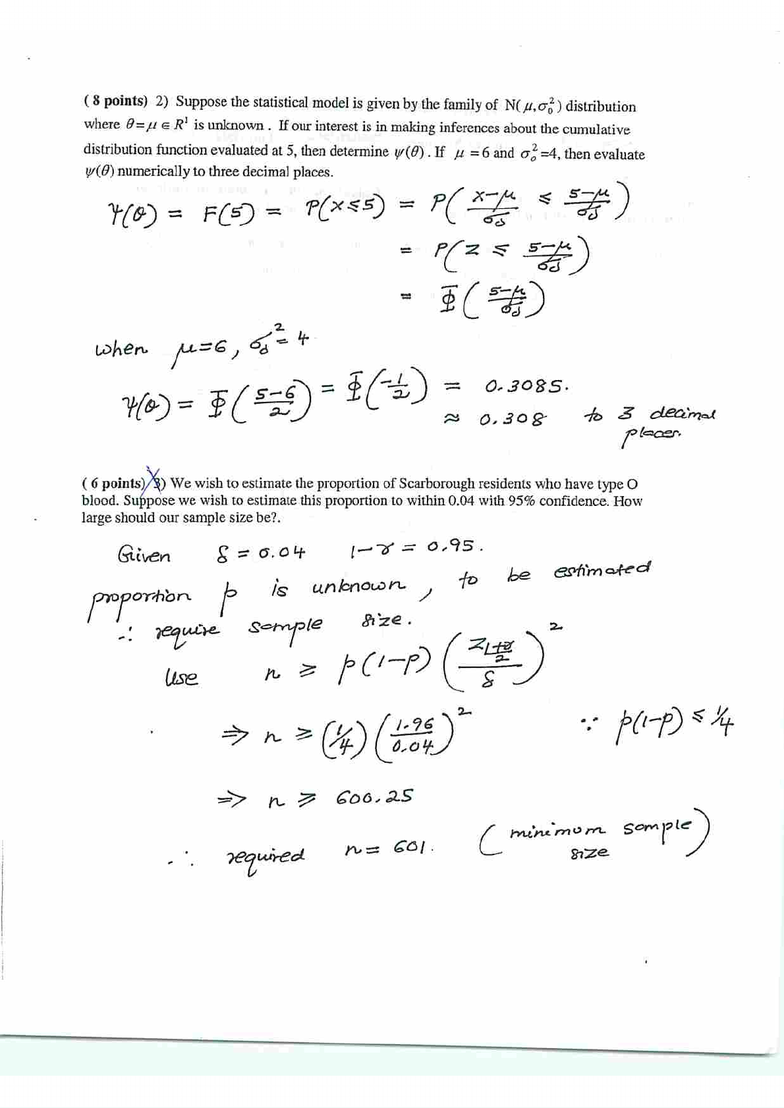 ( 8 points) 2) Suppose the statistical model is given by the family of N( μ,σ₀²) distribution
where θ=μ ∈ R¹ is unknown . If our interest is in making inferences about the cumulative
distribution function evaluated at 5, then determine ψ(θ) . If μ =6 and σ₀² =4, then evaluate
ψ(θ) numerically to three decimal places.
Ψ(θ) = F(5) = P(X ≤ 5) = P( (X-μ)/σ₀ ≤ (5-μ)/σ₀ )
= P( Z ≤ (5-μ)/σ₀ )
= Φ( (5-μ)/σ₀ )
when μ=6, σ₀² = 4
Ψ(θ) = Φ( (5-6)/2 ) = Φ( -1/2 ) = 0.3085.
≈ 0.308 to 3 decimal
places.
( 6 points) 3) We wish to estimate the proportion of Scarborough residents who have type O
blood. Suppose we wish to estimate this proportion to within 0.04 with 95% confidence. How
large should our sample size be?.
Given δ = 0.04 1-γ = 0.95.
proportion p is unknown, to be estimated
∴ require sample size.
Use n ≥ p(1-p) ( z_{(1+γ)/2} / δ )²
⇒ n ≥ (1/4) ( 1.96/0.04 )² ∵ p(1-p) ≤ 1/4
⇒ n ≥ 600.25
∴ required n = 601. ( minimum sample
size )